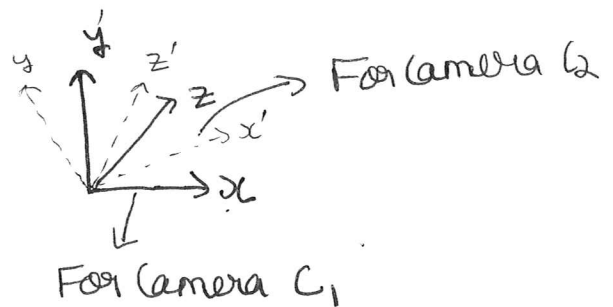 y'
y z'
z For Camera C2
x'
x
For Camera C1